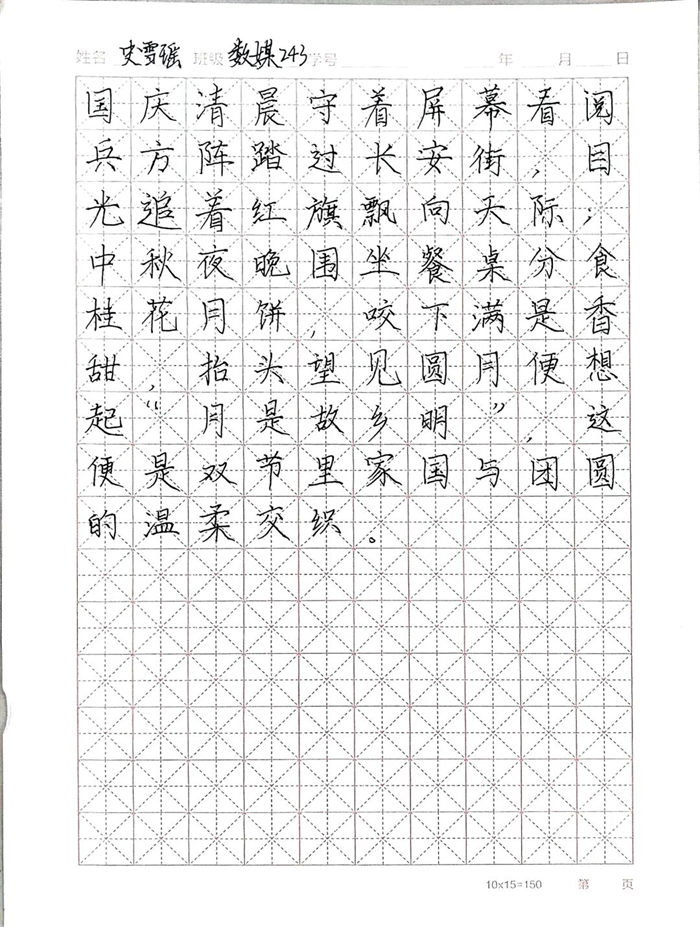 姓名 史雪瑶 班级 数媒243 学号 年 月 日
国庆清晨守着屏幕看阅
兵方阵踏过长安街，目
光追着红旗飘向天际；
中秋夜晚围坐餐桌分食
桂花月饼，咬下满是香
甜，抬头望见圆月便想
起“月是故乡明”，这
便是双节里家国与团圆
的温柔交织。
10x15=150 第 页